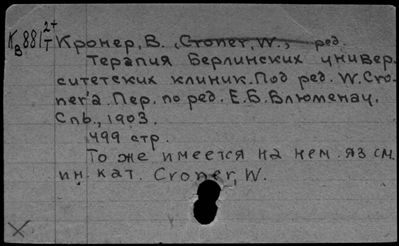 Кв 881 2+/I Кронер, В. , Croner, W. , ред.
Терапия Берлинских универ-
ситетских клиник. Под ред. W. Cro-
ner'а. Пер. по ред. Е. Б. Блюменау.
Спб., 1903.
499 стр.
То же имеется на нем. яз см.
ин. кат. Croner, W.